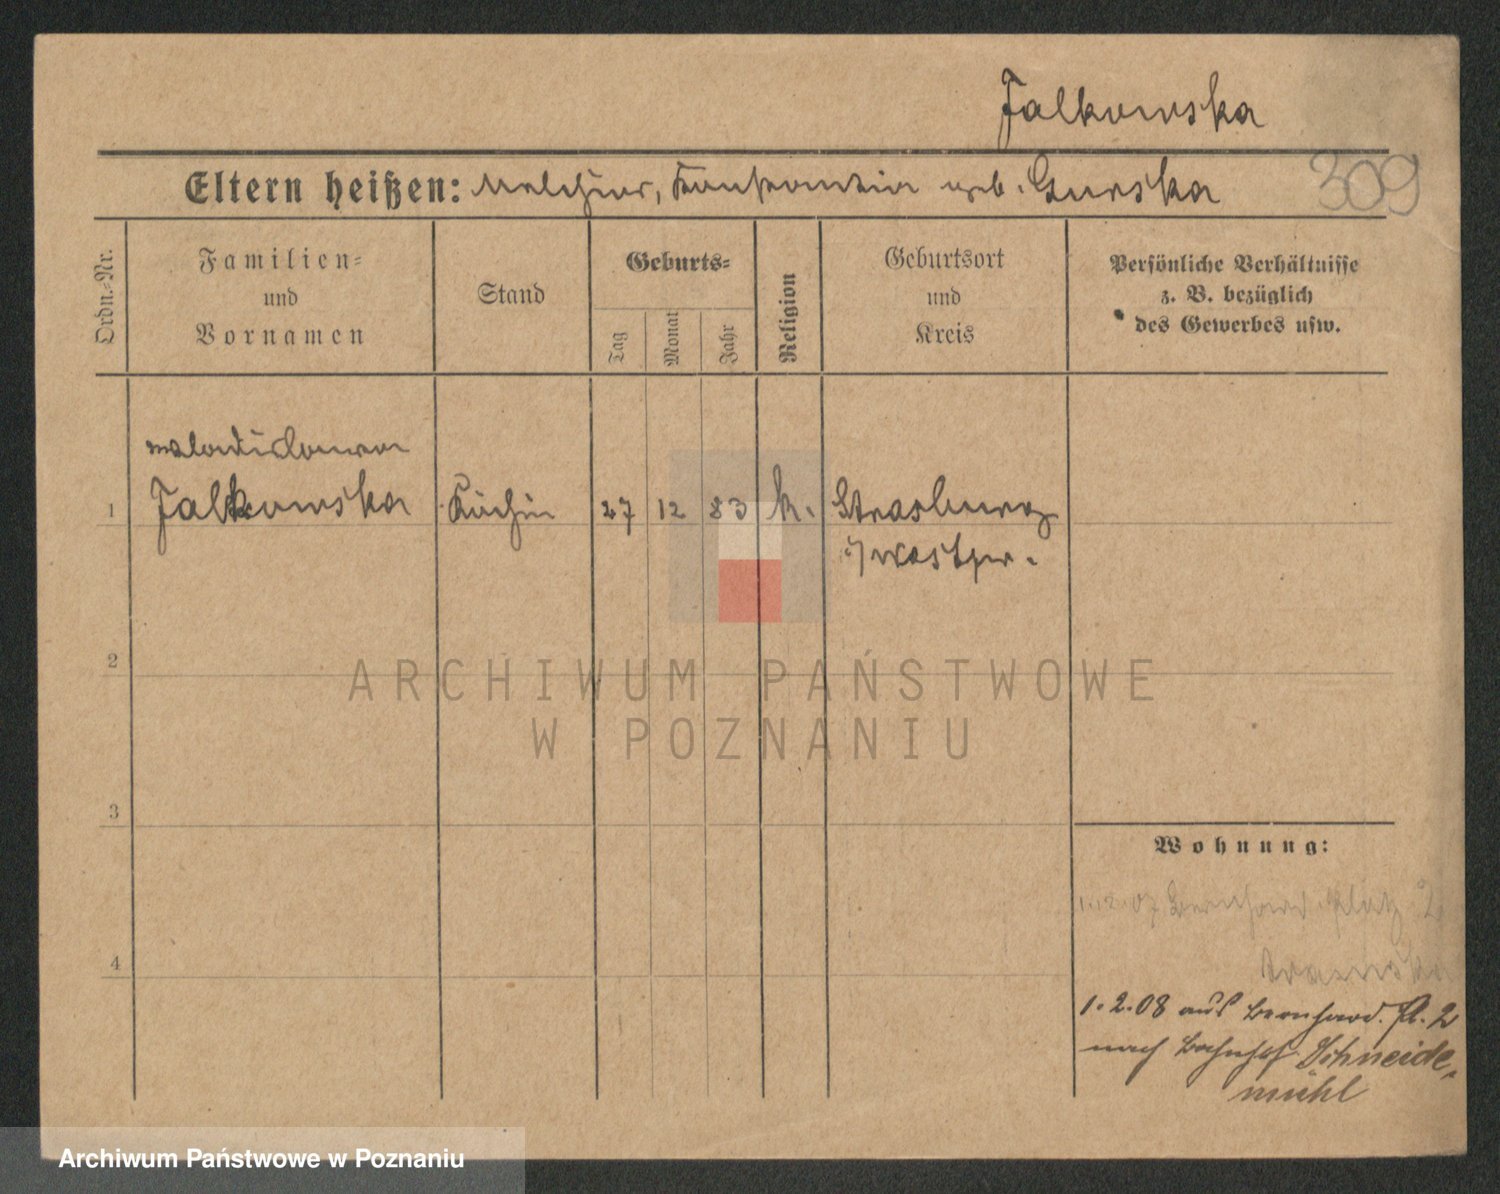 Falkowska
309
Eltern heißen: Melchior, Konstantia geb. Gurska
Ordn.-Nr.
Familien-
und
Vornamen
Stand
Geburts-
Tag
Monat
Jahr
Religion
Geburtsort
und
Kreis
Persönliche Verhältnisse
z. B. bezüglich
des Gewerbes usw.
1
Falkowska
Köchin
27
12
83
k.
Strasburg
i/ Westpr.
2
3
4
Wohnung:
1.12.07 Bernhard. Platz 2
1.2.08 aus Bernhard. Pl. 2
nach Bahnhof Schneide-
mühl
ARCHIWUM PAŃSTWOWE
W POZNANIU
Archiwum Państwowe w Poznaniu